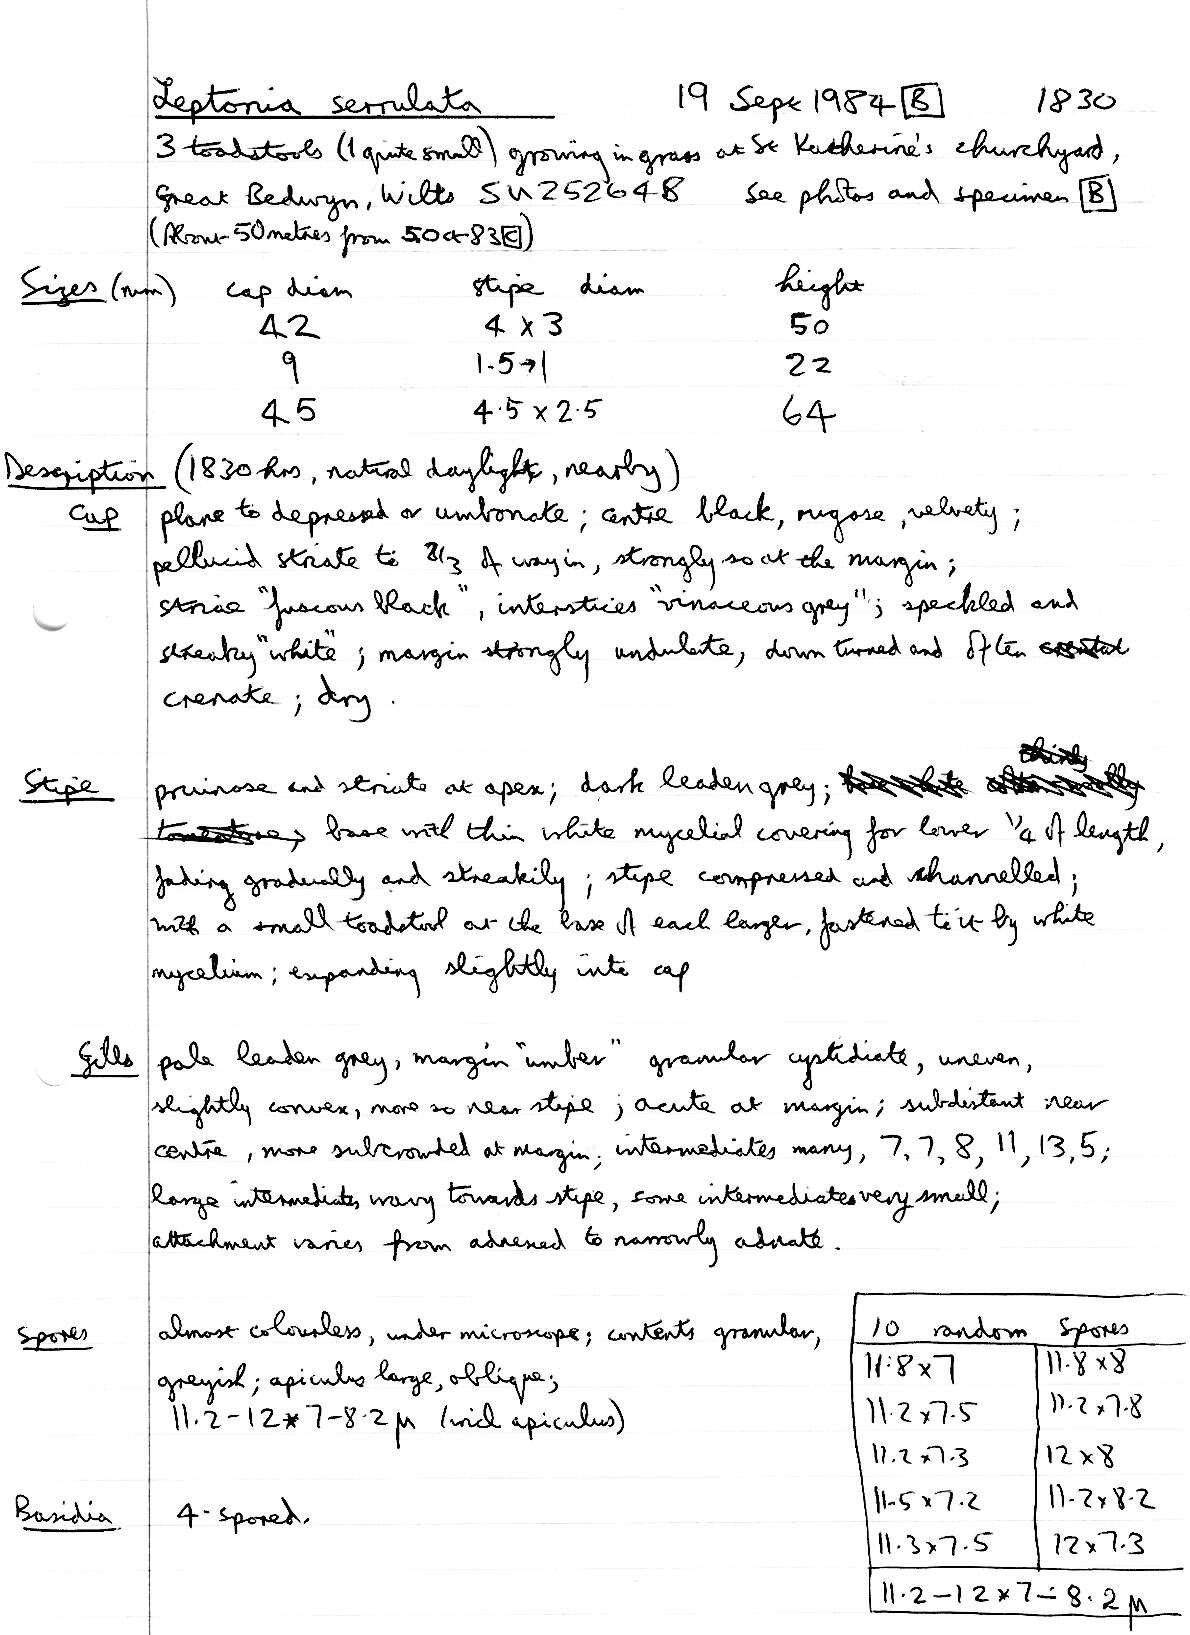 Leptonia serrulata 19 Sept 1984 [B] 1830
3 toadstools (1 quite small) growing in grass at St Katherine's churchyard,
Great Bedwyn, Wilts SU252648 See photos and specimen [B]
(About 50 metres from 5 Oct 83 [C])
Sizes (mm) cap diam stipe diam height
42 4 x 3 50
9 1.5→1 22
45 4.5 x 2.5 64
Description (1830 hrs, natural daylight, nearby)
Cap plane to depressed or umbonate; centre black, rugose, velvety;
pellucid striate to 2/3 of way in, strongly so at the margin;
striae "fuscous black", interstices "vinaceous grey"; speckled and
streaky "white"; margin strongly undulate, down turned and often
crenate; dry.
Stipe pruinose and striate at apex; dark leaden grey;
base with thin white mycelial covering for lower 1/4 of length,
fading gradually and streakily; stipe compressed and channelled;
with a small toadstool at the base of each larger, fastened to it by white
mycelium; expanding slightly into cap
Gills pale leaden grey, margin "umber" granular cystidiate, uneven,
slightly convex, more so near stipe; acute at margin; subdistant near
centre, more subcrowded at margin; intermediates many, 7, 7, 8, 11, 13, 5;
large intermediates wavy towards stipe, some intermediates very small;
attachment varies from adnexed to narrowly adnate.
Spores almost colourless, under microscope; contents granular,
greyish; apiculus large, oblique;
11.2-12 x 7-8.2 µ (incl apiculus)
10 random spores
11.8 x 7 11.8 x 8
11.2 x 7.5 11.2 x 7.8
11.2 x 7.3 12 x 8
11.5 x 7.2 11.2 x 8.2
11.3 x 7.5 12 x 7.3
11.2-12 x 7-8.2 µ
Basidia 4-spored.